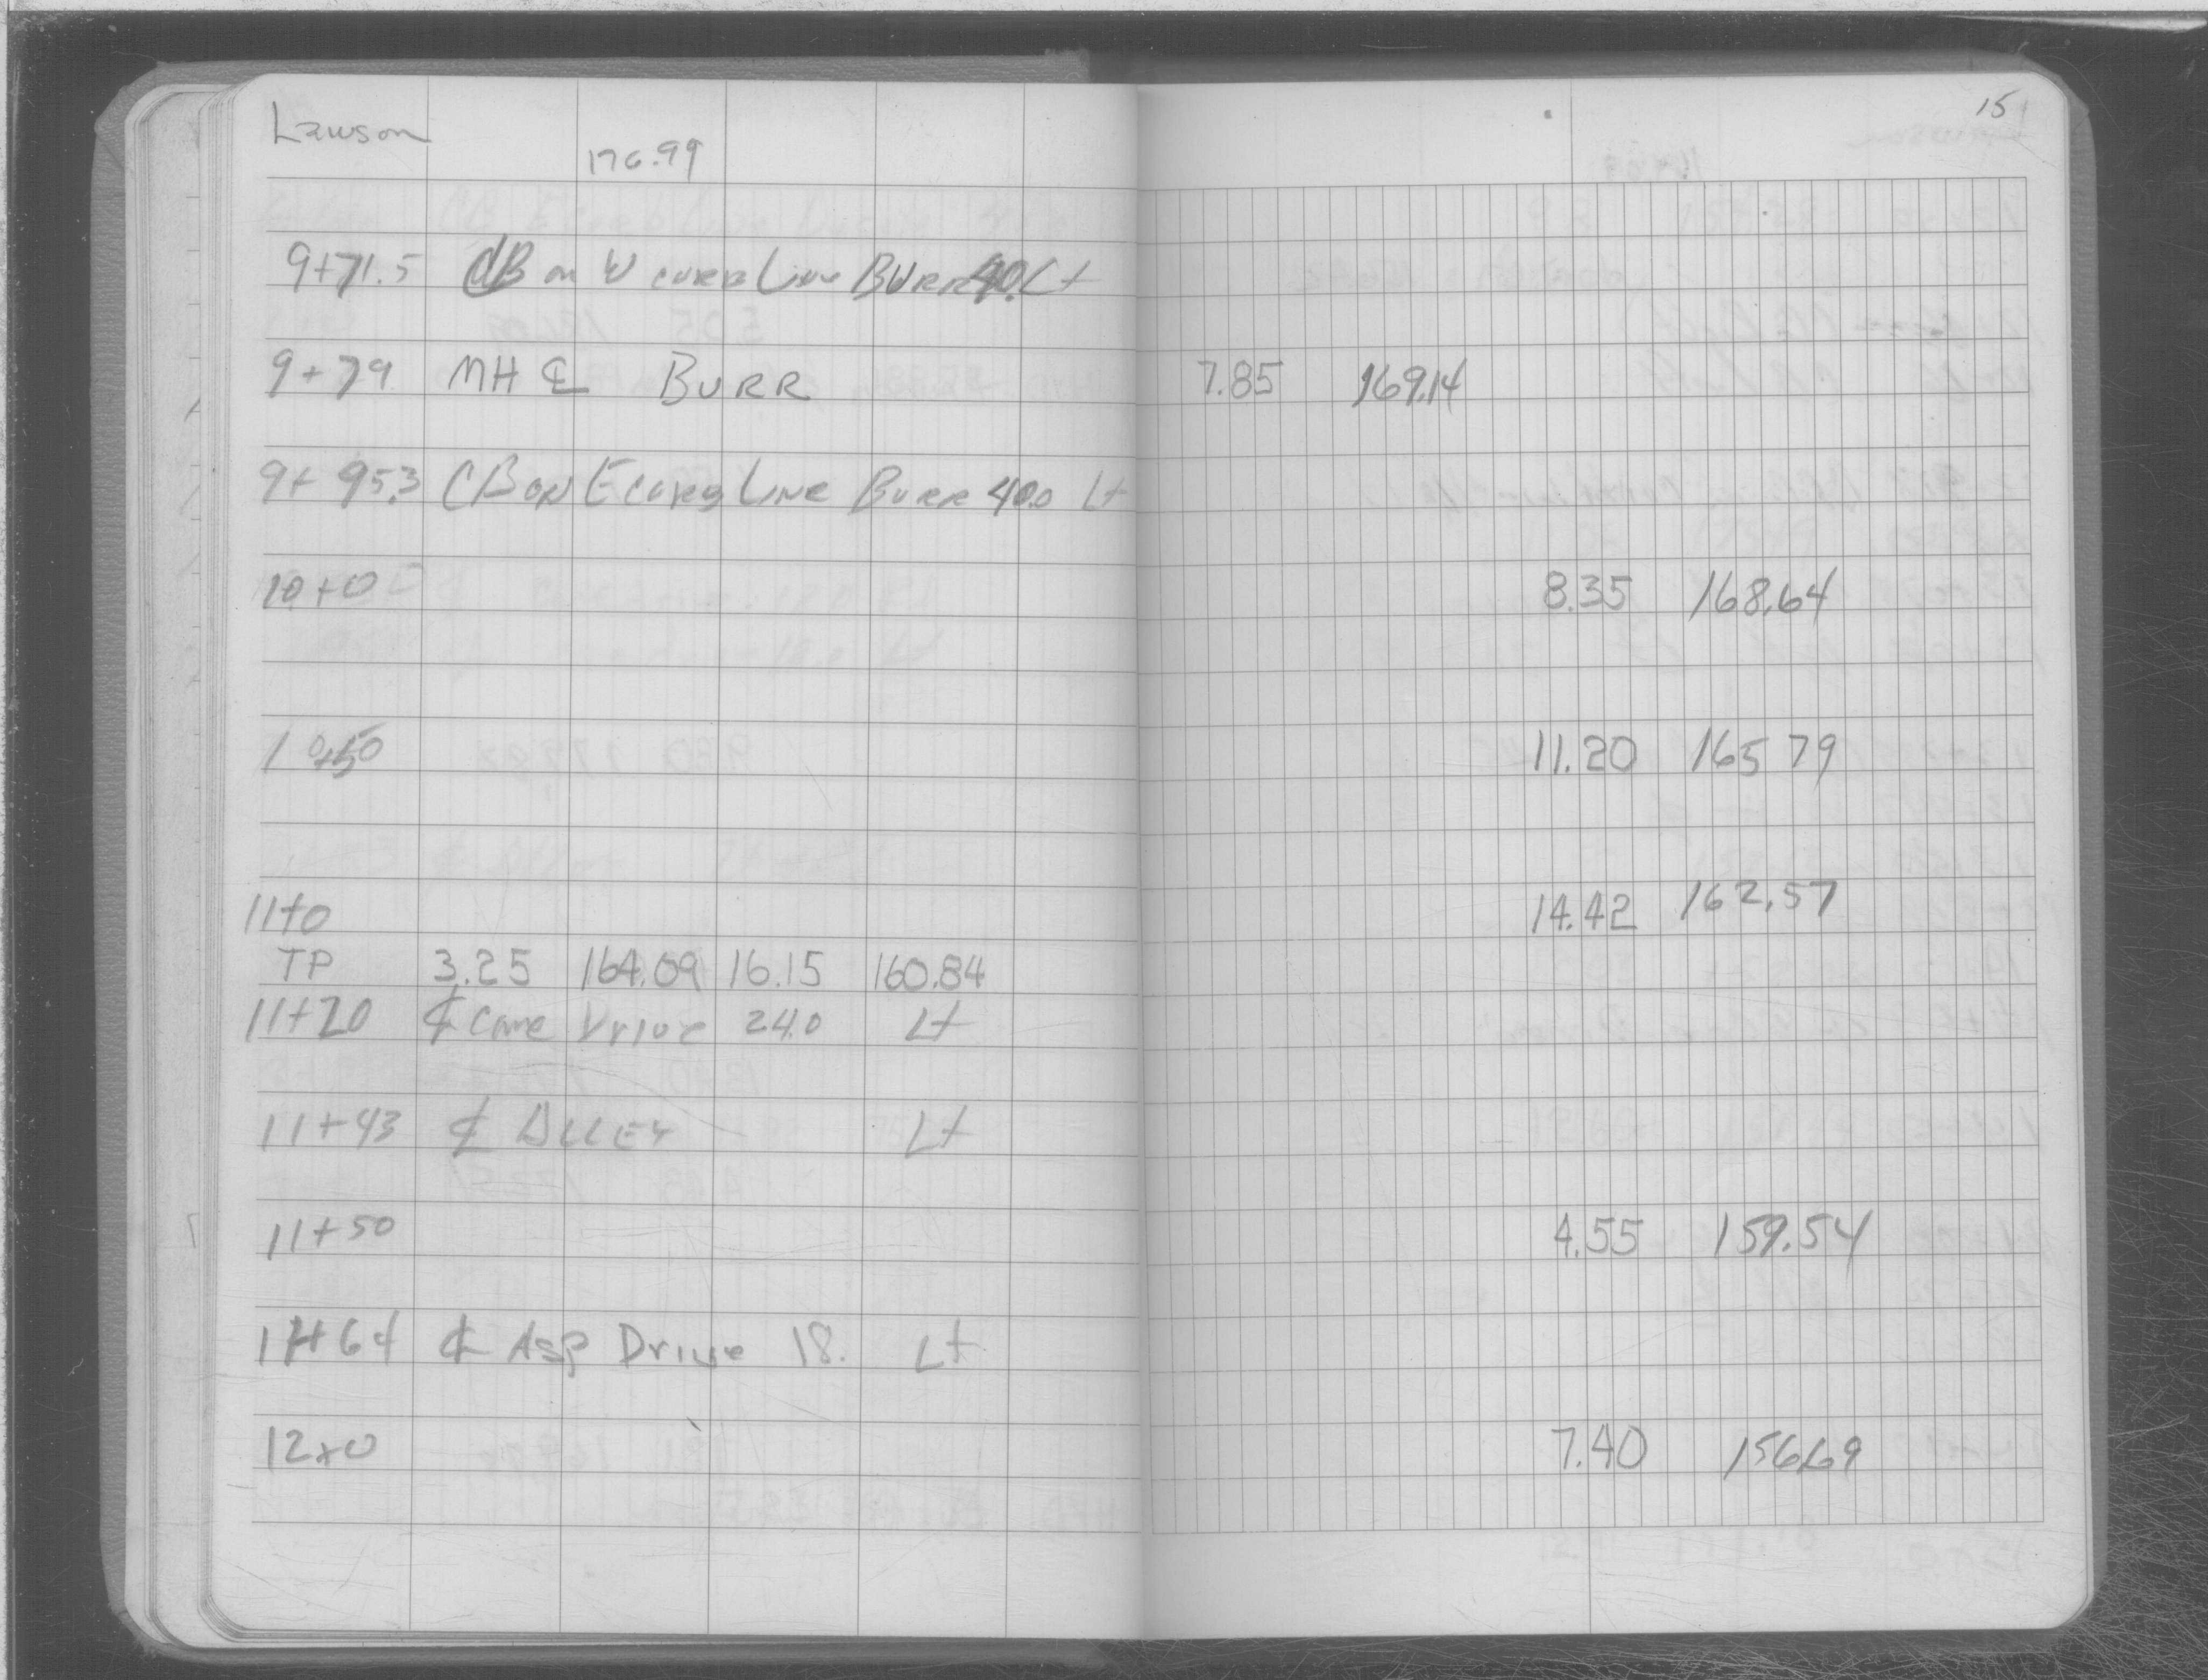 Lawson
176.99
15
9+71.5 CB on W curb Line Burr 40. Lt
9+79 MH ℄ Burr 7.85 169.14
9+95.3 CB on E curb Line Burr 40.0 Lt
10+0 8.35 168.64
10+50 11.20 165 79
11+0 14.42 162.57
TP 3.25 164.09 16.15 160.84
11+20 ℄ Conc Drive 24.0 Lt
11+43 ℄ Alley Lt
11+50 4.55 159.54
11+64 ℄ Asp Drive 18. Lt
12+0 7.40 156.69